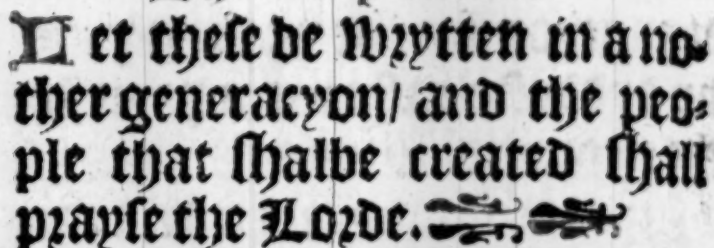 Let these be wrytten in a no⸗
ther generacyon/ and the peo⸗
ple that shalbe created shall
prayse the Lorde.